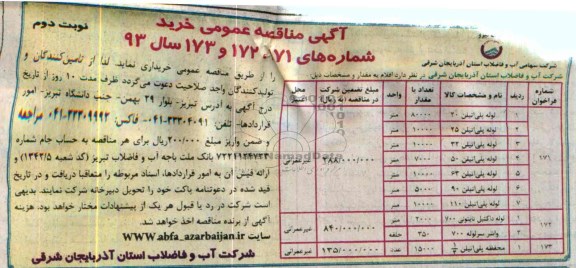 آگهی مناقصه عمومی خرید
نوبت دوم
شماره‌های ۱۷۱-۱۷۲ و ۱۷۳ سال ۹۳
شرکت سهامی آب و فاضلاب استان آذربایجان شرقی
شرکت آب و فاضلاب استان آذربایجان شرقی در نظر دارد اقلام به مقدار و مشخصات ذیل
را از طریق مناقصه عمومی خریداری نماید. لذا از تامین‌کنندگان و
تولیدکنندگان واجد صلاحیت دعوت می‌گردد ظرف مدت ۱۰ روز از تاریخ
درج آگهی به آدرس تبریز- بلوار ۲۹ بهمن- جنب دانشگاه تبریز- امور
قراردادها- تلفن: ۳۳۳۰۴۰۹۱-۰۴۱ فاکس: ۳۳۳۰۹۹۹۲-۰۴۱ مراجعه
و ضمن واریز مبلغ ۲۰۰/۰۰۰ریال برای هر مناقصه به حساب جام شماره
بانک ملت باجه آب و فاضلاب تبریز (کد شعبه ۱۳۴۲/۵) و
ارائه فیش آن به امور قراردادها، اسناد مربوطه را متعاقبا دریافت و در تاریخ
قید شده در دعوتنامه پاکت خود را تحویل دبیرخانه شرکت نمایند. بدیهی
است شرکت در رد یا قبول هر یک از پیشنهادات مختار خواهد بود. هزینه
آگهی از برنده مناقصه اخذ خواهد شد.
سایت WWW.abfa_azarbaijan.ir
شرکت آب و فاضلاب استان آذربایجان شرقی
شماره فراخوان ردیف نام و مشخصات کالا تعداد یا مقدار واحد مبلغ تضمین شرکت در مناقصه (به ریال) محل اعتبار
۱۷۱ ۱ لوله پلی‌اتیلن ۲۰ ۸۰۰۰۰ متر غیرعمرانی
۲ لوله پلی‌اتیلن ۲۵ ۱۰۰۰۰ متر
۳ لوله پلی‌اتیلن ۳۲ ۱۰۰۰۰ متر
۴ لوله پلی‌اتیلن ۵۰ ۷۰۰۰ متر
۵ لوله پلی‌اتیلن ۶۳ ۱۰۰۰۰ متر
۶ لوله پلی‌اتیلن ۹۰ ۵۰۰۰ متر
۷ لوله پلی‌اتیلن ۱۱۰ ۱۰۰۰۰ متر
۱۷۲ ۱ لوله داکتیل تایتونی ۷۰۰ ۲۰۰۰ متر ۸۴۰/۰۰۰/۰۰۰ غیرعمرانی
۲ واشر سرلوله ۷۰۰ ۳۵۰ حلقه
۱۷۳ ۱ محفظه پلی‌اتیلن ۱۵۰۰۰ عدد ۱۳۵/۰۰۰/۰۰۰ غیرعمرانی